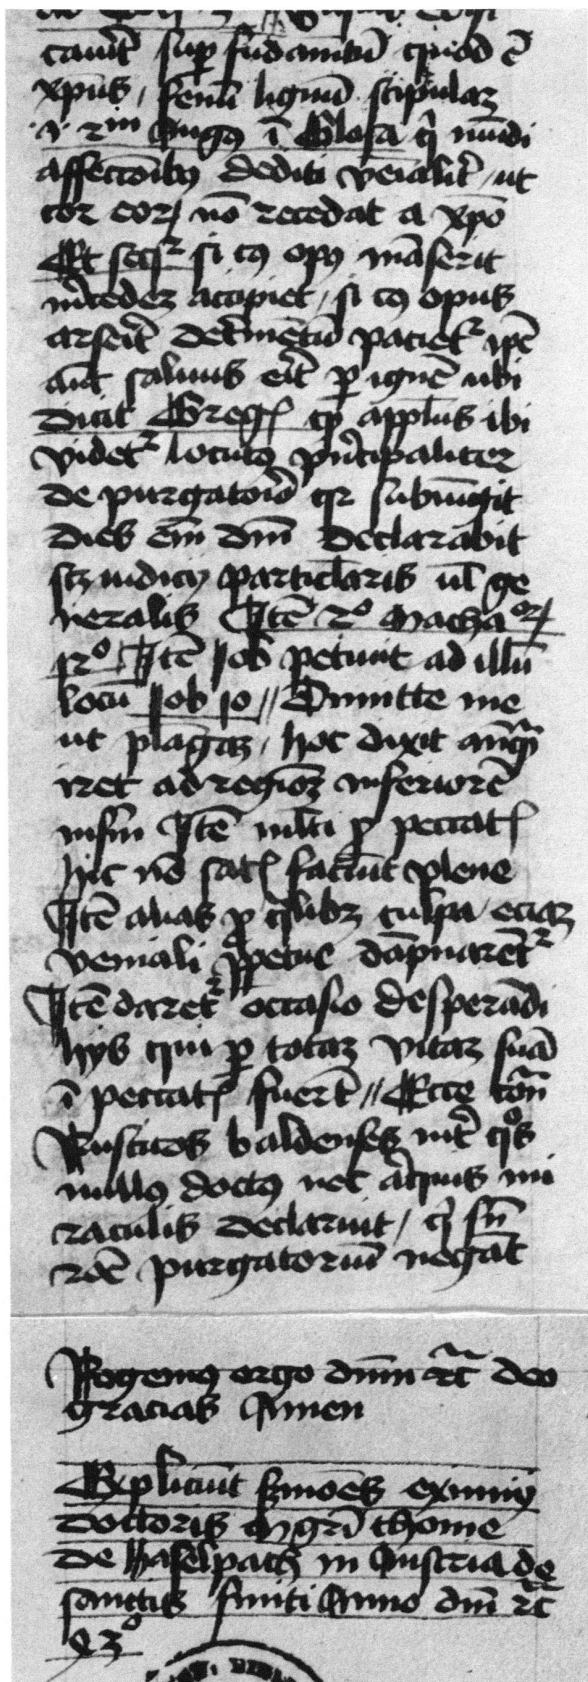 cauit sup fūdamētū quod ē
xpūs, fenū lignū stipulaz
i Augꝰ ī Glosa qi mūdi
affecconibꝰ dediti veialit̄, ut
cor eorꝝ nō recedat a xpo
Et seqr si cꝰ opꝰ māserit
m̄cedez accipiet, si cꝰ opus
arserit det̄mētū patiet᷑ ip̄e
aut̄ saluus erit p ignē ubi
dicit Greg ꝙ applus ibi
videt᷑ locutꝰ pn̄cipaliter
de purgatorio qr subiūgit
dies em̄ dnī declarabit
scz iudicij particlaris ul ge
neralis Itē 2º Machaorꝝ
12º Itē Job petiuit ad illū
locū Job 10 // Dimitte me
ut plāgaz, hoc dixit anq̄
iret ad regionz inferiorē
infirm Itē ml̄ti p peccatꝭ
hic nō satꝭ faciūt plene
Itē alias p qlibz culpa eciaz
veniali ꝑpetue dāpnarēt᷑
Itē daret᷑ occasio desperādi
hijs qui p totaz vitaz suā
ī peccatꝭ fuerīt // Ecce cōn
Rusticos baldenses int̄ qos
nullꝰ doctꝰ nec aliquis mi
raculis declaruit, qi sn̄
purgatoriū negāt
Rogemꝰ ergo dnm̄ rc̄ deo
gracias Amen
Expliciūt smōēs eximij
doctoris mgrī thome
de haselpach in Austria de
sanctis finiti Anno dnī rc̄